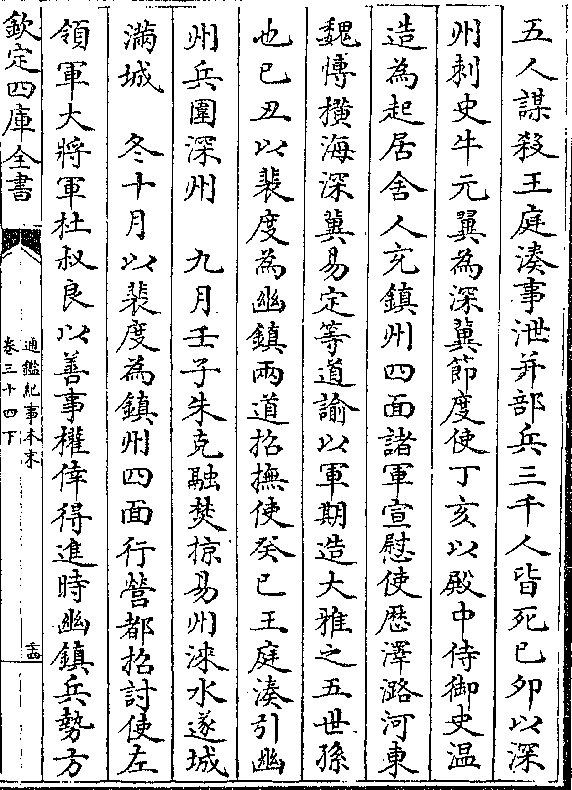 五人謀殺王庭湊事泄并部兵三千人皆死己卯以深
州刺史牛元翼為深冀節度使丁亥以殿中侍御史温
造為起居舍人充鎮州四面諸軍宣慰使歴澤潞河東
魏愽横海深冀易定等道諭以軍期造大雅之五世孫
也己丑以裴度為幽鎮兩道招撫使癸巳王庭湊引幽
州兵圍深州　九月壬子朱克融焚掠易州淶水遂城
滿城　冬十月以裴度為鎮州四面行營都招討使左
領軍大將軍杜叔良以善事權倖得進時幽鎮兵勢方
欽定四庫全書
通鑑紀事本末
卷三十四下